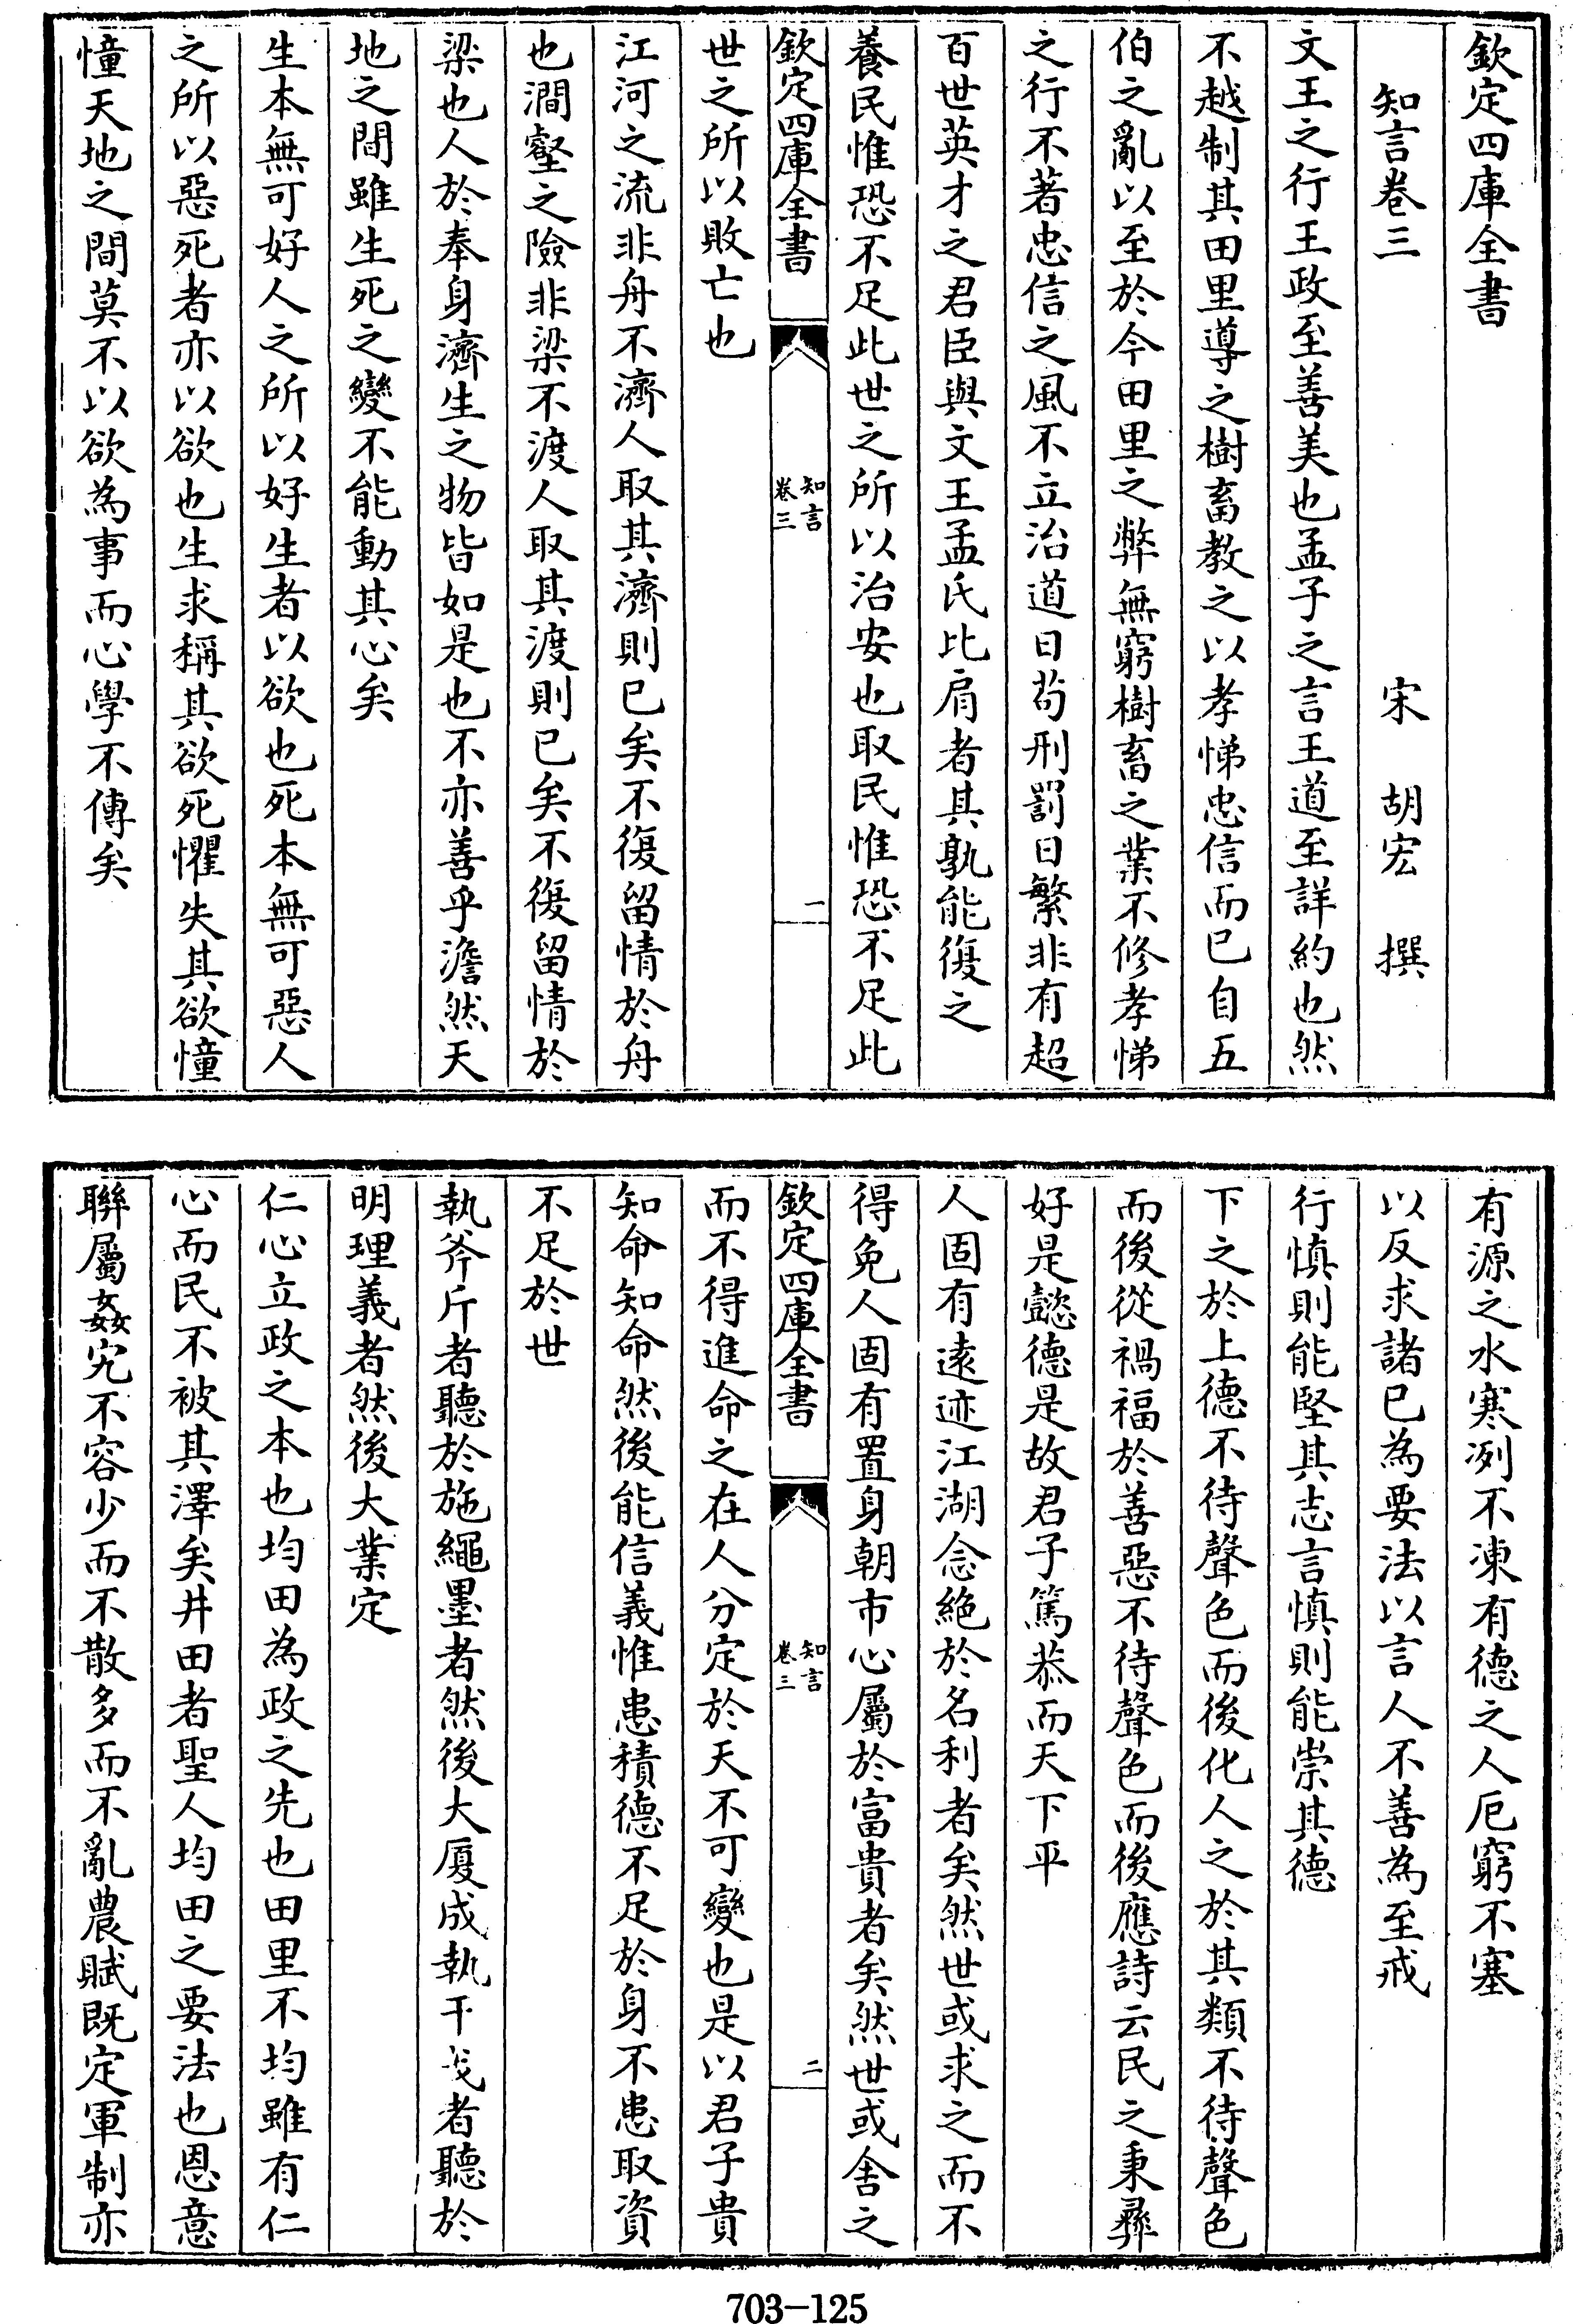 欽定四庫全書
知言卷三
宋 胡宏 撰
文王之行王政至善美也孟子之言王道至詳約也然
不越制其田里導之樹畜教之以孝悌忠信而已自五
伯之亂以至於今田里之弊無窮樹畜之業不修孝悌
之行不著忠信之風不立治道日苟刑罰日繁非有超
百世英才之君臣與文王孟氏比肩者其孰能復之
養民惟恐不足此世之所以治安也取民惟恐不足此
欽定四庫全書
知言
卷三
一
世之所以敗亡也
江河之流非舟不濟人取其濟則已矣不復留情於舟
也澗壑之險非梁不渡人取其渡則已矣不復留情於
梁也人於奉身濟生之物皆如是也不亦善乎澹然天
地之間雖生死之變不能動其心矣
生本無可好人之所以好生者以欲也死本無可惡人
之所以惡死者亦以欲也生求稱其欲死懼失其欲憧
憧天地之間莫不以欲為事而心學不傳矣
有源之水寒冽不凍有德之人厄窮不塞
以反求諸已為要法以言人不善為至戒
行慎則能堅其志言慎則能崇其德
下之於上德不待聲色而後化人之於其類不待聲色
而後從禍福於善惡不待聲色而後應詩云民之秉彝
好是懿德是故君子篤恭而天下平
人固有遠迹江湖念絕於名利者矣然世或求之而不
得免人固有置身朝市心屬於富貴者矣然世或舍之
欽定四庫全書
知言
卷三
二
而不得進命之在人分定於天不可變也是以君子貴
知命知命然後能信義惟患積德不足於身不患取資
不足於世
執斧斤者聽於施繩墨者然後大廈成執干戈者聽於
明理義者然後大業定
仁心立政之本也均田為政之先也田里不均雖有仁
心而民不被其澤矣井田者聖人均田之要法也恩意
聯屬姦宄不容少而不散多而不亂農賦既定軍制亦
703-125